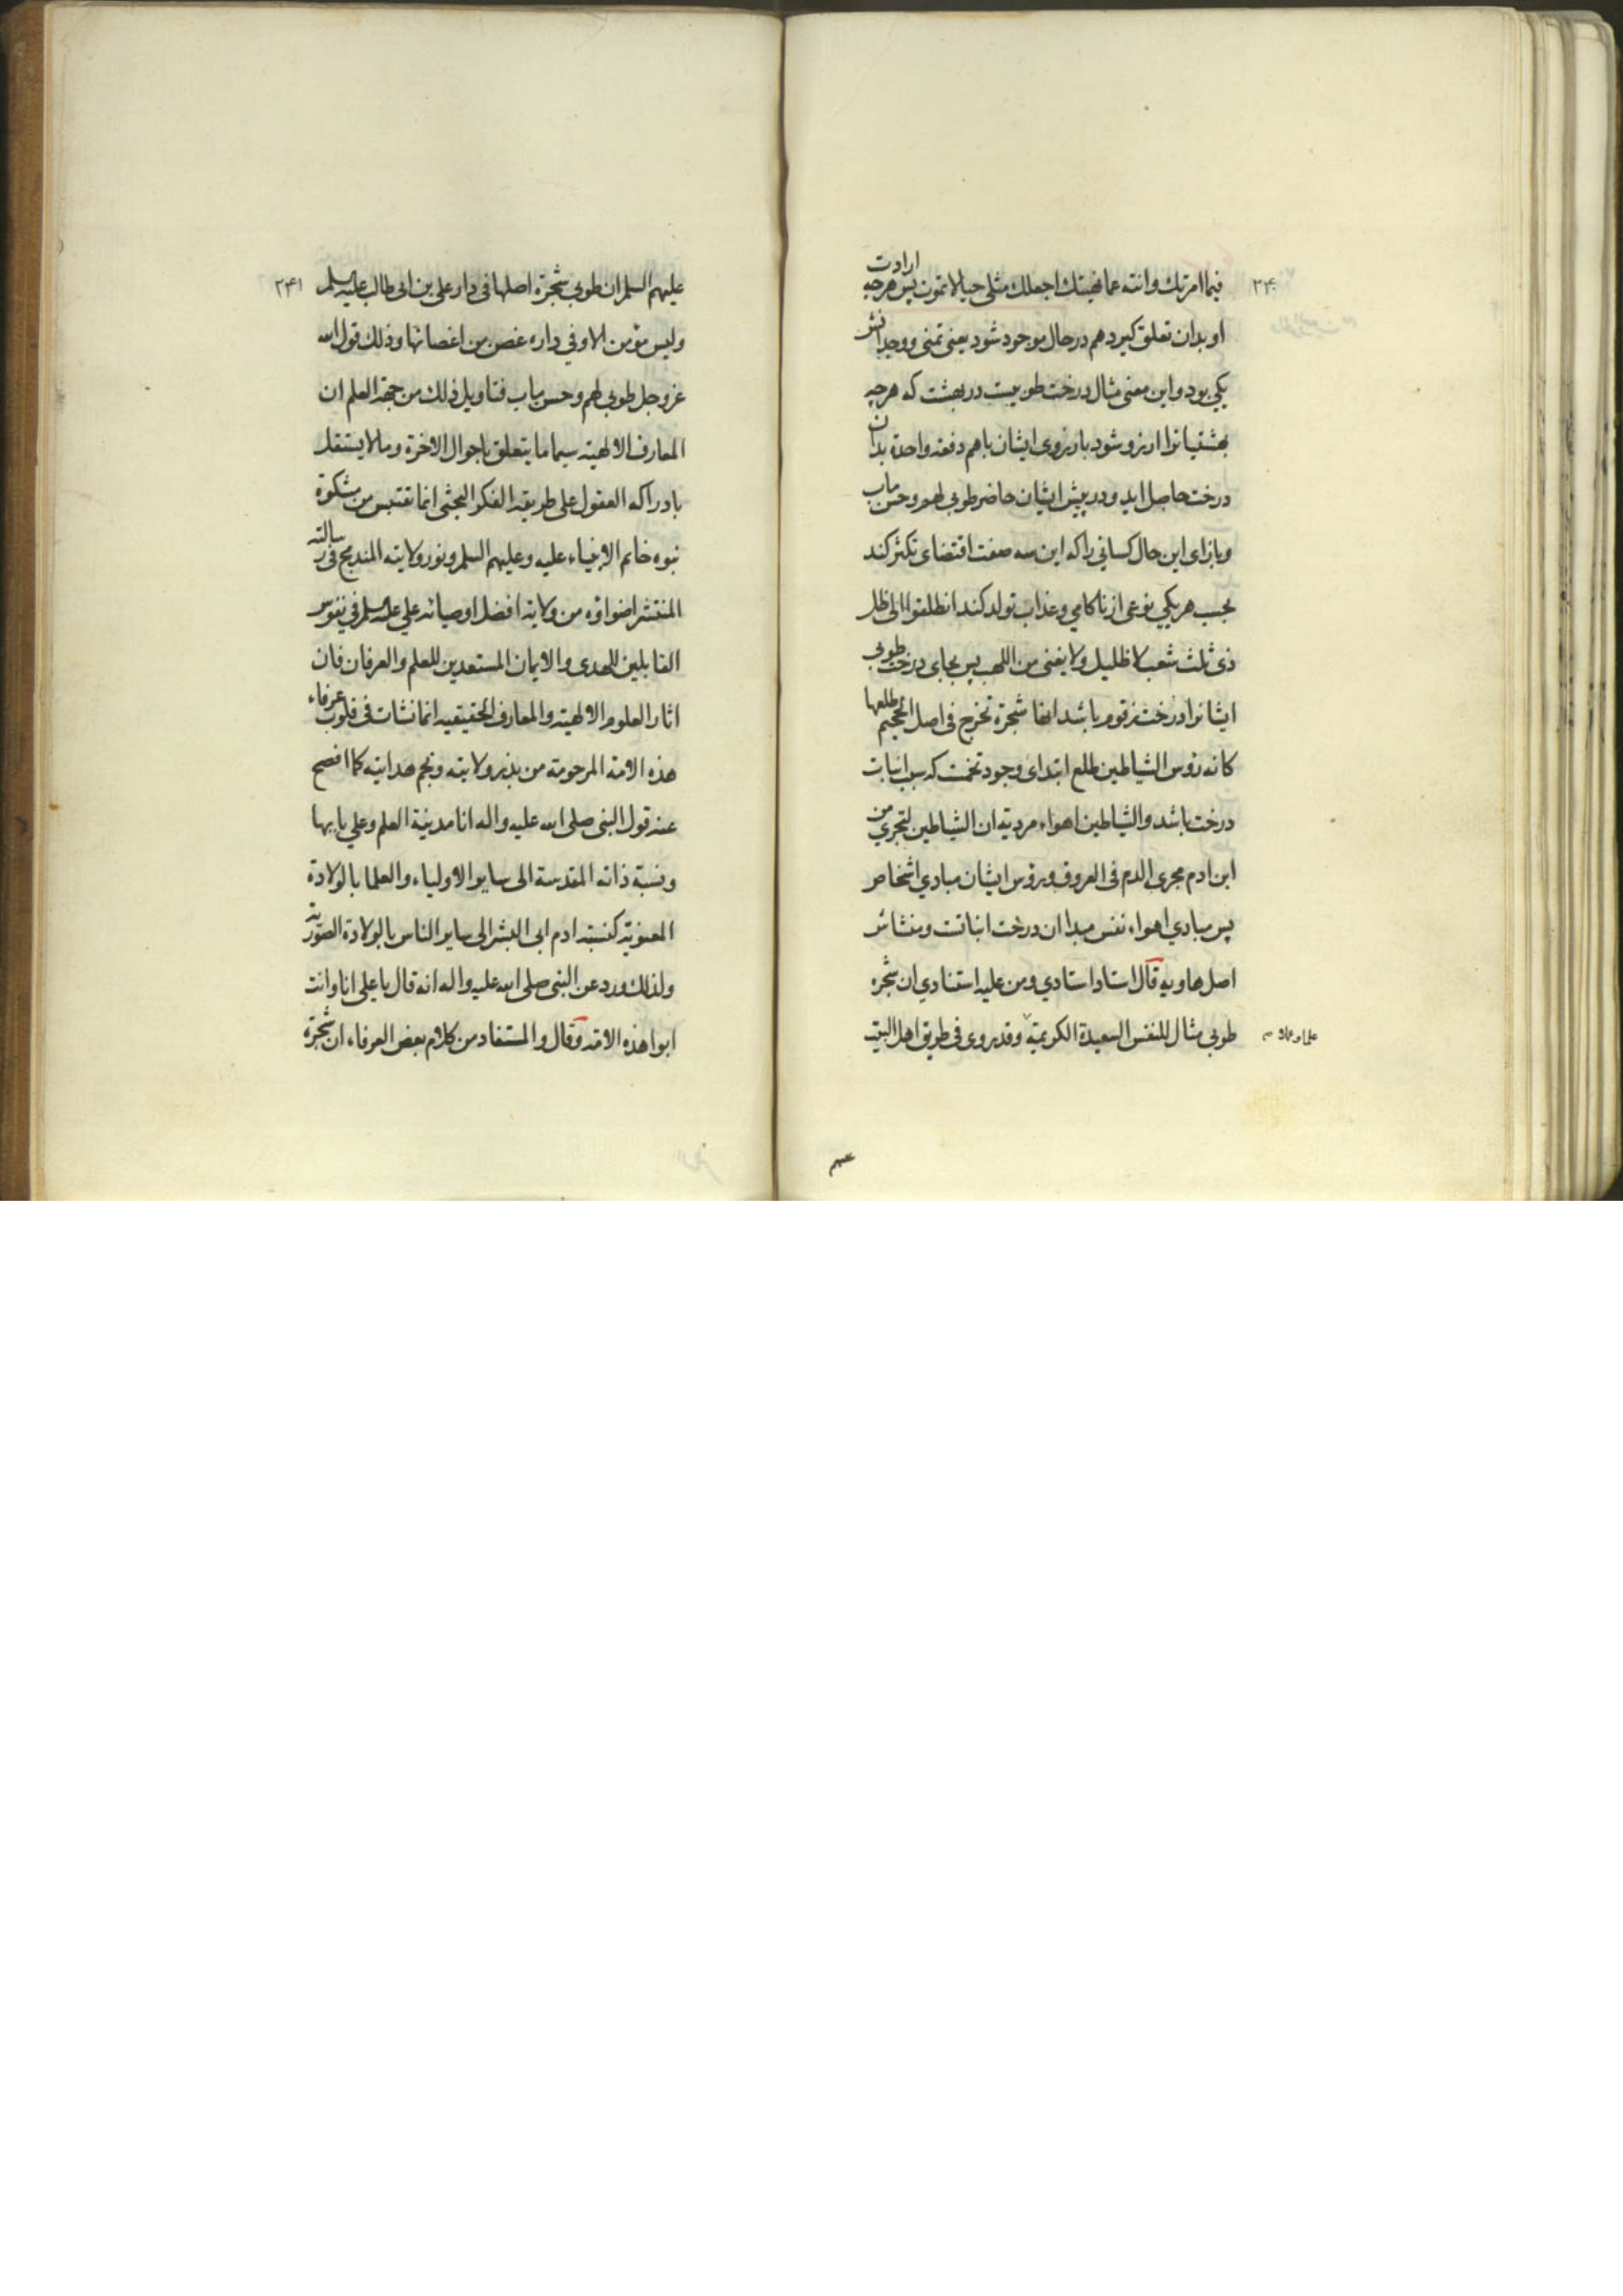 ۲۴۰
فیما امرتك وانته عما نهیتك اجعلك مثلی حیا لا تموت پس هرچه ارادت
او بدان تعلق کیرد هم در حال موجود شود یعنی تمنی و وجدانش
یکی بود و این معنی مثال درخت طوبیست در بهشت که هرچه
بهشتیانرا ارزو شود بارزوی ایشان باهم دفعه واحدة بدان
درخت حاصل اید و در پیش ایشان حاضر طوبی لهم و حسن ماب
و بازای این حال کسانی را که این سه صفت اقتضای تکثر کند
بحسب هر یکی نوعی از ناکامی و عذاب تولد کند انطلقوا الی ظل
ذی ثلث شعب لا ظلیل ولا یغنی من اللهب پس بجای درخت طوبی
ایشانرا درخت زقوم باشد انها شجرة تخرج فی اصل الجحیم طلعها
کانه رؤس الشیاطین طلع ابتدای وجود تخمت که سبب انبات
درخت باشد والشیاطین اهواء مردیه ان الشیاطین لتجری من
ابن ادم مجری الدم فی العروق ورؤس ایشان مبادی اشخاص
پس مبادی اهواء نفس مبدا ان درخت انباتت و منشاش
اصل هاویه قال استاد استادی ومن علیه استنادی ان شجره
طوبی مثال للنفس السعیدة الکریمة وقد روی فی طریق اهل البیت
علما وعملا
علیهم السلم ان طوبی شجرة اصلها فی دار علی بن ابی طالب علیه السلم
۲۴۱
ولیس مؤمن الا وفی داره غصن من اغصانها وذلك قول الله
عز وجل طوبی لهم وحسن ماب فتاویل ذلك من جهة العلم ان
المعارف الالهیة سیما ما یتعلق باحوال الاخرة وما لا یستقل
بادراکه العقول علی طریقه الفکر البحثی انما تقتبس من مشکوة
نبوه خاتم الانبیاء علیه وعلیهم السلم ونور ولایته المندمج فی رسالته
المنتشر اضواؤه من ولایة افضل اوصیائه علی علیه السلم فی نفوس
القابلین للهدی والایمان المستعدین للعلم والعرفان فان
اثار العلوم الالهیة والمعارف الحقیقیه انما نشات فی قلوب عرفاء
هذه الامة المرحومة من بذر ولایته ونجم هدایته کما افصح
عنه قول النبی صلی الله علیه واله انا مدینة العلم وعلی بابها
ونسبة ذاته المقدسة الی سایر الاولیاء والعلما بالولادة
المعنویة کنسبة ادم ابی البشر الی سایر الناس بالولادة الصوریة
ولذلك ورد عن النبی صلی الله علیه واله انه قال یا علی انا وانت
ابوا هذه الامة وقال والمستفاد من کلام بعض العرفاء ان شجرة